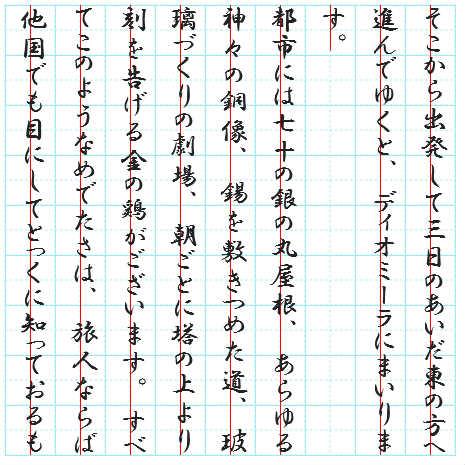 そこから出発して三日のあいだ東の方へ
進んでゆくと、ディオミーラにまいりま
す。
都市には七十の銀の丸屋根、あらゆる
神々の銅像、錫を敷きつめた道、玻
璃づくりの劇場、朝ごとに塔の上より
刻を告げる金の鶏がございます。すべ
てこのようなめでたさは、旅人ならば
他国でも目にしてとっくに知っておるも